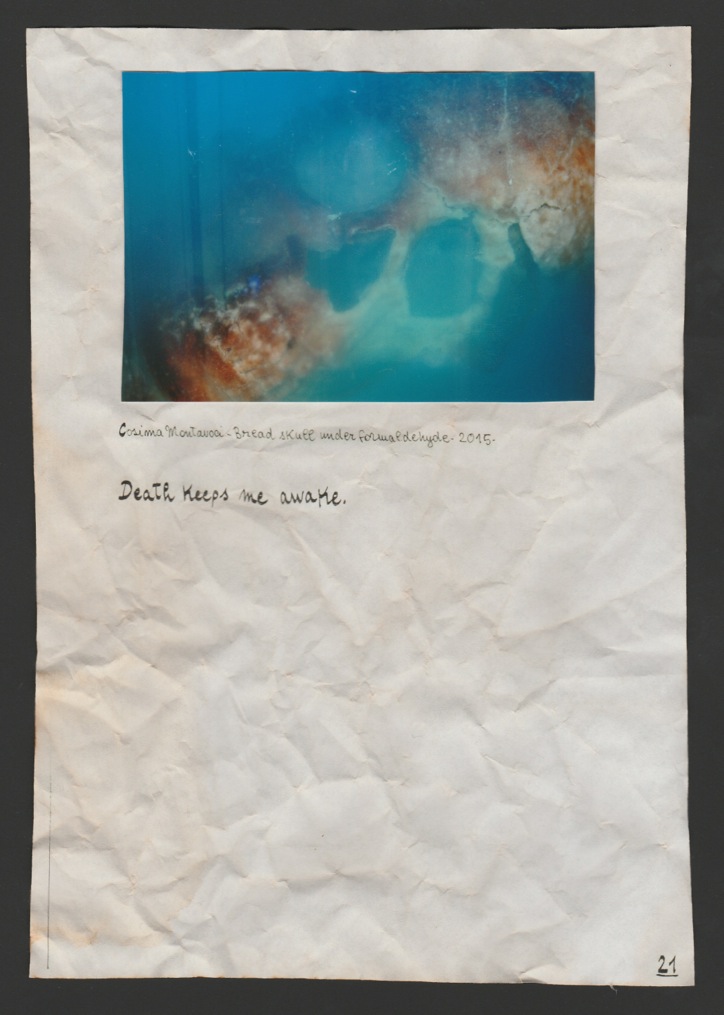 Cosima Montavoci - Bread skull under formaldehyde - 2015 -
Death keeps me awake.
21